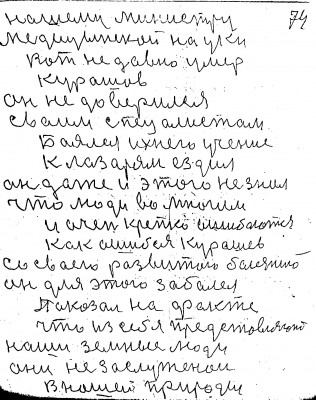 74
нашему министру
медецинской науки
вот недавно умер
Курашов
он не доверился
своим специалистам
Боялся ихнего учение
К лазарям ездил
он даже и этого незнал
что люди во многим
и очен крепко ошибаются
Как ошибся Курашев
со своего развитого
он для этого забалел
Показал на факте
что из себя представляют
наши земные люди
они незаслуженои
В нашей природы